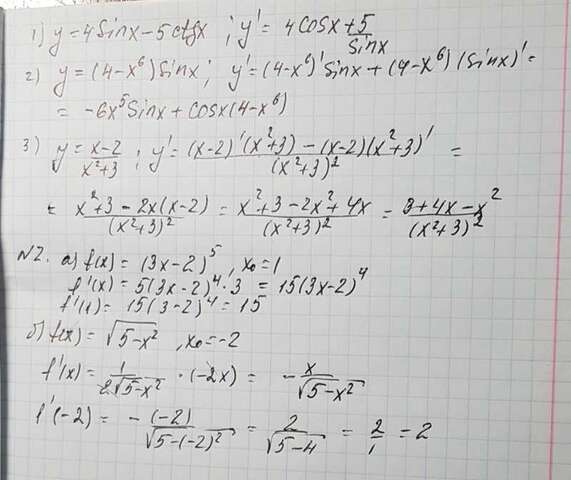 1) y = 4 sinx − 5 ctgx ; y' = 4cosx + 5/sinx
2) y = (4−x⁶) sinx ; y' = (4−x⁶)' sinx + (4−x⁶)(sinx)' =
= −6x⁵ sinx + cosx(4−x⁶)
3) y = (x−2)/(x²+3) ; y' = ((x−2)'(x²+3) − (x−2)(x²+3)')/(x²+3)² =
= (x²+3 − 2x(x−2))/(x²+3)² = (x²+3 − 2x² + 4x)/(x²+3)² = (3+4x−x²)/(x²+3)²
N2. a) f(x) = (3x−2)⁵, x₀=1
f'(x) = 5(3x−2)⁴·3 = 15(3x−2)⁴
f'(1) = 15(3−2)⁴ = 15
б) f(x) = √(5−x²), x₀=−2
f'(x) = 1/(2√(5−x²)) · (−2x) = − x/√(5−x²)
f'(−2) = − (−2)/√(5−(−2)²) = 2/√(5−4) = 2/1 = 2